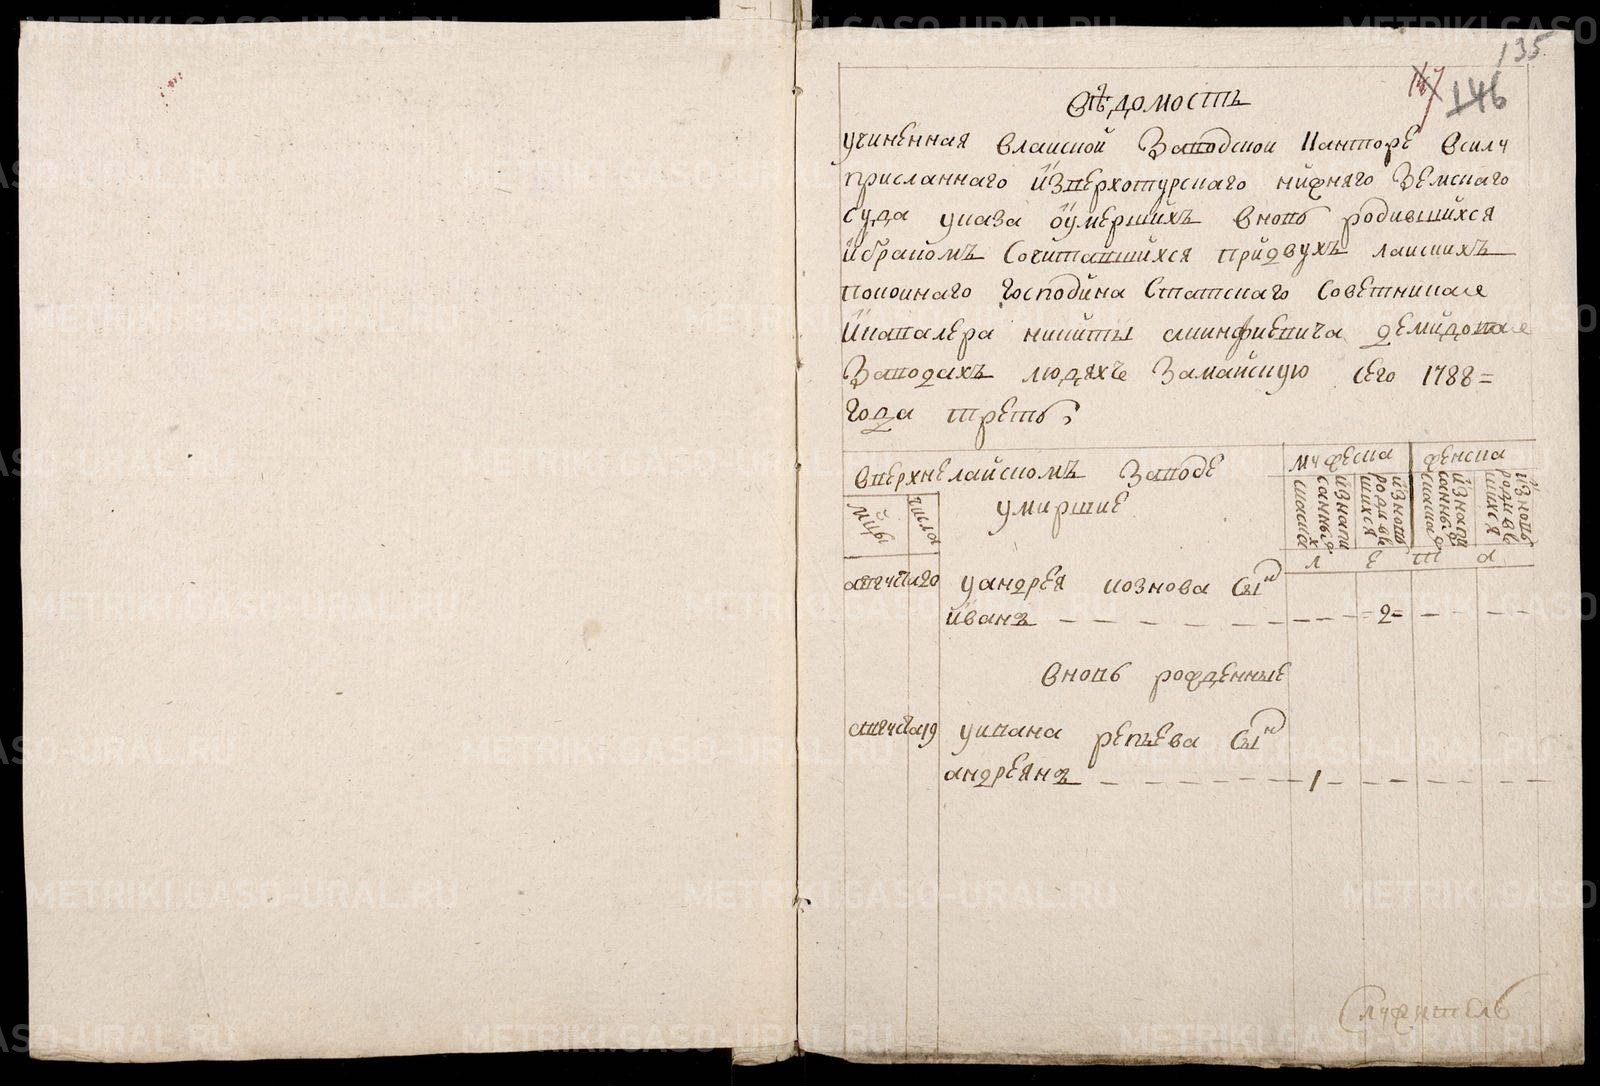 135
147
146
Вѣдомость
учиненная влайской Заводской Канторе всилу
присланнаго изверхотурскаго нижняго Земскаго
суда указа оумершихъ вновь родившихся
ибракомъ Сочитавшихся придвухъ лайскихъ
покойнаго Господина Статскаго Советника
Икавалера никиты акинфиевича демидова
Заводахъ людяхъ Замайскую сего 1788=
года треть,
вверхнелайскомъ Заводе
мужеска женска
умиршие
мцы
числа
изнапи
санныхъ
родивш
шихся
изнапи
санныхъ
изновь
родивш
шихся
л е т а
20 уандрея кознова Сынъ
иванъ — — — — — — — — — =2= — — — —
вновь рожденные
19 Репьева Сынъ
андреянъ — — — — — — — — 1 — — — — — —
Служитель
METRIKI.GASO-URAL.RU